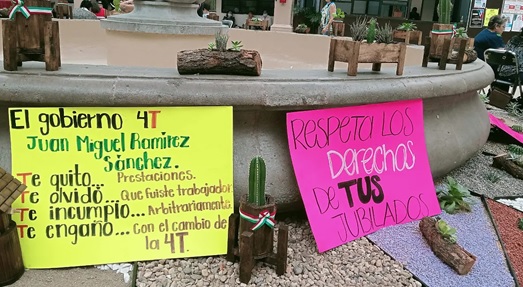 El gobierno 4T
Juan Miguel Ramirez
Sánchez.
Te quito... Prestaciones.
Te olvidó... Que fuiste trabajador
Te incumpio... Arbitrariamente.
Te engaño... con el cambio de
la 4T.
RESPETA LOS
DERECHOS
DE TUS
JUBILADOS